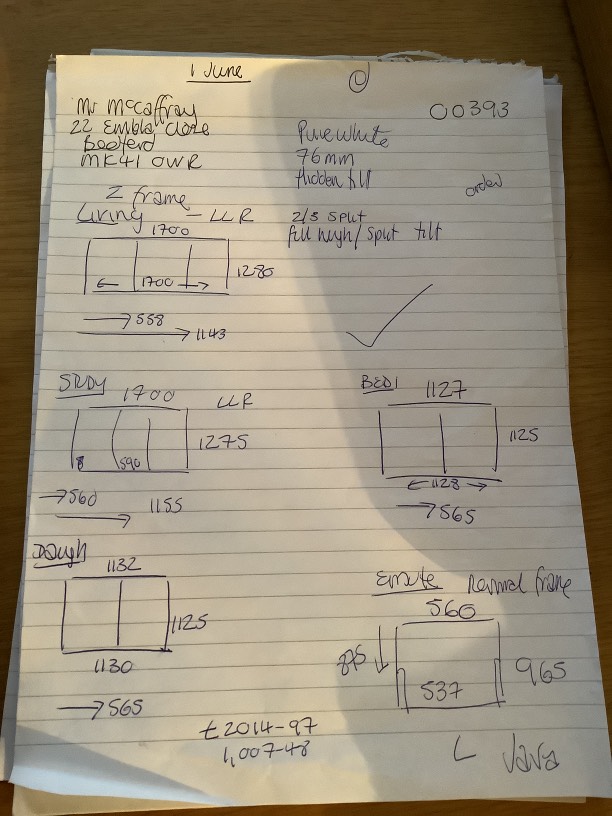 1 June
00393
Mr McCaffray
22 Embla Close
Bedford
MK41 0WR
Pure white
76mm
Hidden tilt
order
Z frame
Living - LLR
2/3 split
full heigh/ split tilt
1700
1280
← 1700 →
→ 558
→ 1143
STUDY
1700
LLR
1275
590
→ 560
1155
BED1
1127
1125
← 1128 →
→ 565
Daugh
1132
1125
1130
→ 565
Ensuite normal frame
560
875
965
537
£2014-97
1,007-48
L Java